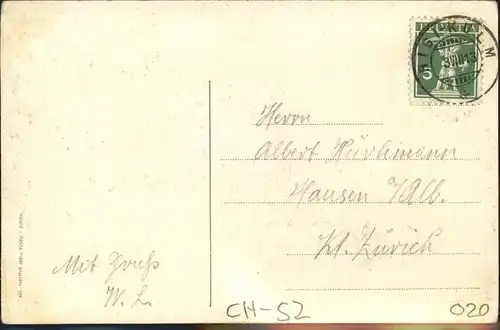 HELVETIA
5
KULM
Herrn
Albert Hürlimann
Hausen a/Alb.
Kt. Zürich
Mit Gruss
W. L.
CH-52
020